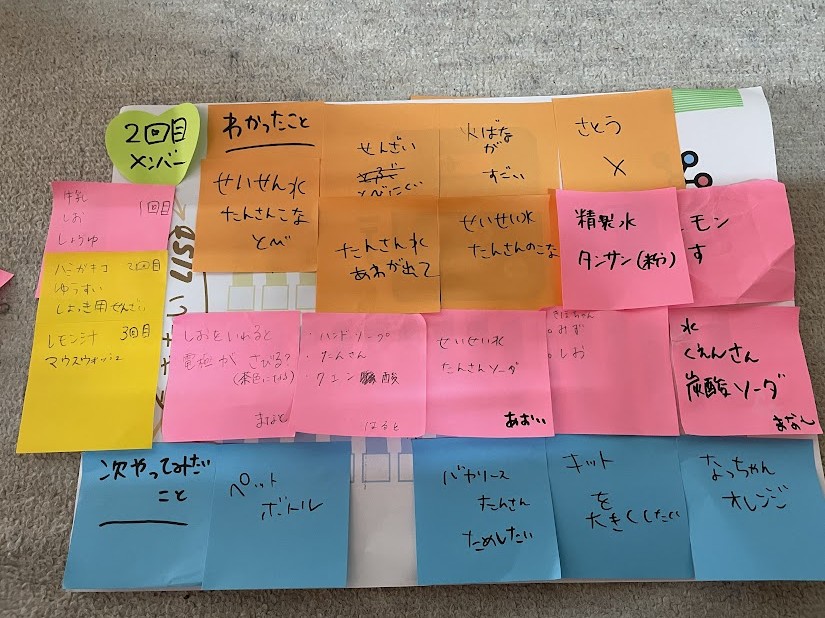 2回目
メンバー
わかったこと
せんざい
とべにくい
火ばな
が
すごい
さとう
×
せいせん水
たんさんこな
とべ
たんさん水
あわが出て
せいせい水
たんさんのこな
精製水
タンサン(粉)
モン
す
牛乳
1回目
しお
しょうゆ
ハミガキコ 2回目
ゆうすい
しょっき用せんざい
レモン汁 3回目
マウスウォッシュ
しおをいれると
電極が さびる?
(茶色になる)
まなと
・ハンドソープ
・たんさん
・クエン酸
はると
せいせい水
たんさんソーダ
あおい
みず
しお
水
くえんさん
炭酸ソーダ
まなん
次やってみたい
こと
ペット
ボトル
バヤリース
たんさん
ためしたい
キット
を
大きくしたい
なっちゃん
オレンジ